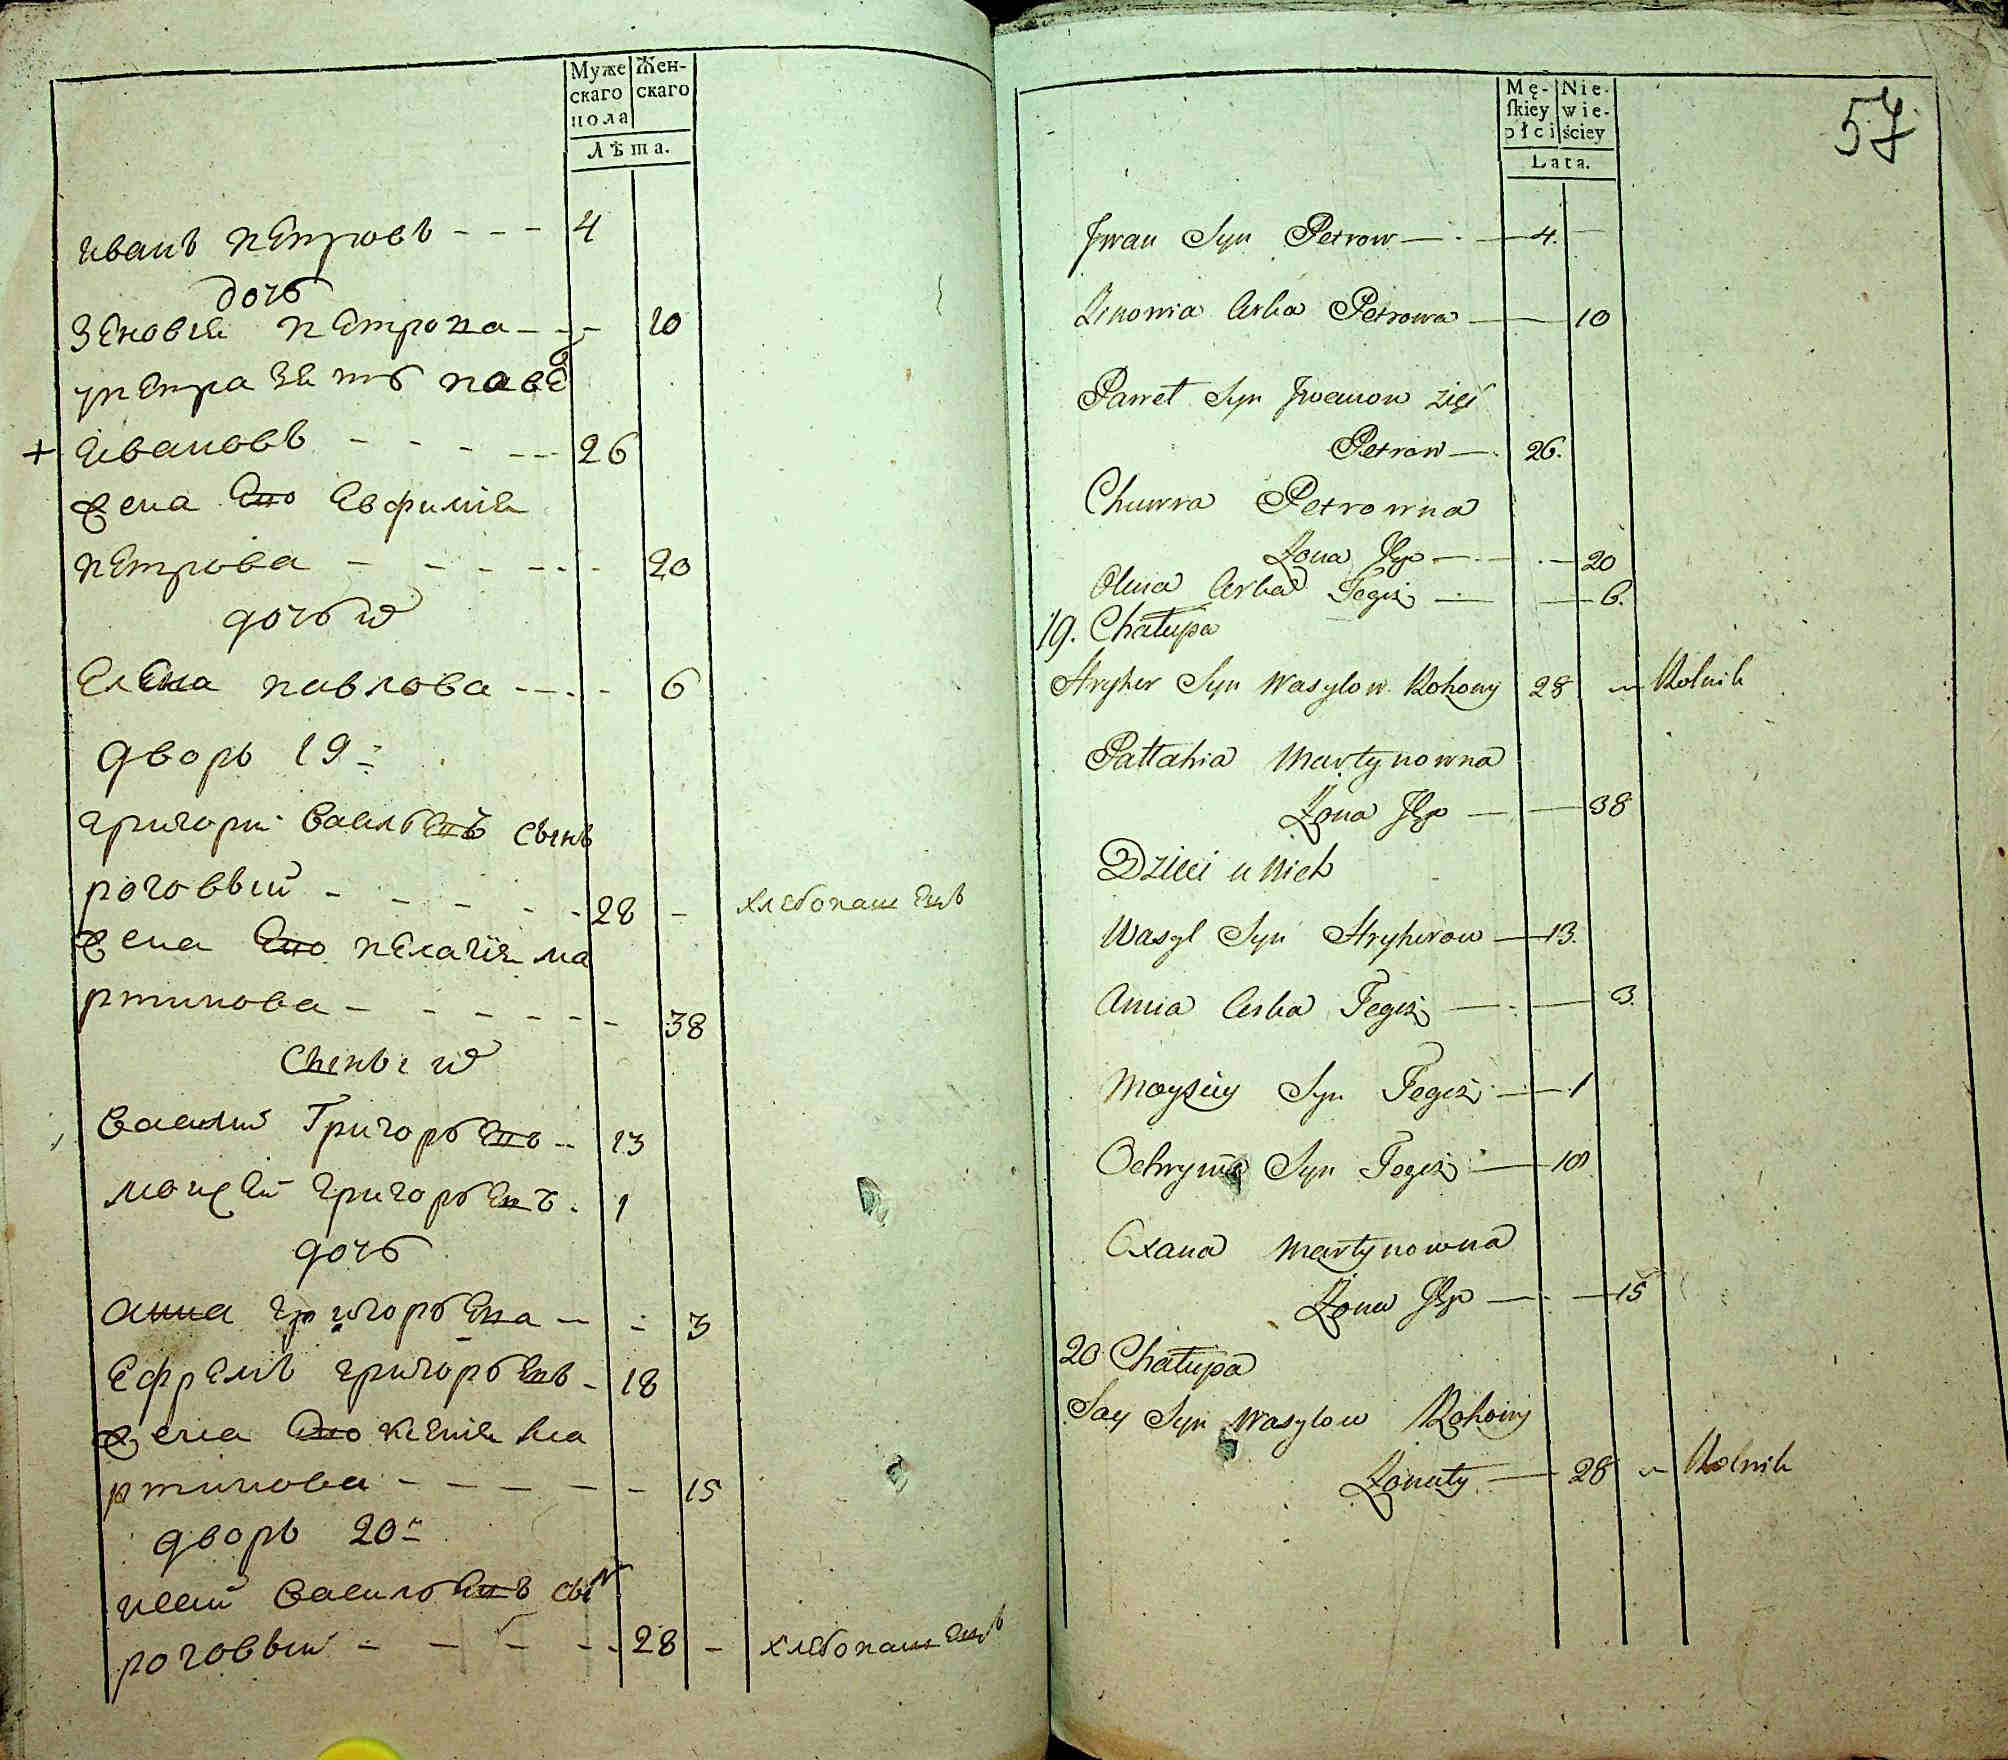 Муже
скаго
пола
Жен-
скаго
Лѣта.
иванъ пЕтровъ - - - 4
дочь
зЕновия пЕтрова - - - 10
упЕтра зять павЕ
+ ивановъ - - - - 26
жена Ево Евфимия
пЕтрова - - - - - 20
дочь их
ЕлЕна павлова - - - - 6
дворъ 19й
григори васильЕвъ сынъ
роговый - - - - - 28 - хлебопашЕцъ
жена Ево пЕлагия ма
ртинова - - - - - - 38
Сыны их
василий ГригорьЕвъ - 13
моисЕй григорьЕвъ - 1
дочь
анна григорьЕва - - 3
ЕфрЕмъ григорьЕвъ - 18
жена Ево ксЕния ма
ртинова - - - - - - 15
дворъ 20й
исай васильЕвъ сын
роговый - - - - - 28 - хлебопашЕцъ
Mę-
skiey
płci
Nie-
wie-
ściey
Lata.
57
Jwan Syn Petrow — 4. —
Zinowia Corka Petrowa — 10
Paweł Syn Jwanow zięć
Petrow — 26.
Chuwra Petrowna
Żona Jego — 20
Olena Corka Tegoż — 6.
19. Chałupa
Hryher Syn Wasylow Rohowy 28 — Rolnik
Pałłahia Martynowna
Żona Jego — 38
Dzieci u Nich
Wasyl Syn Hryherow — 13.
Anna Corka Tegoż — 3.
Moysiey Syn Tegoż — 1
Ochrym Syn Tegoż — 18
Oxana Martynowna
Żona Jego — 15
20 Chałupa
Say Syn Wasylow Rohowy
Żonaty — 28 — Rolnik